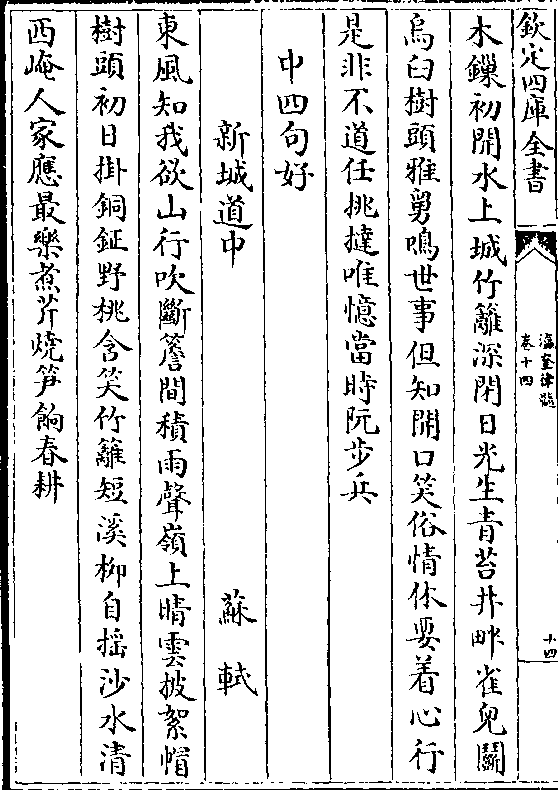 欽定四庫全書
瀛奎律髓
卷十四
十四
木鏁初開水上城竹籬深閉日光生青苔井畔雀兒鬭
烏臼樹頭雅舅鳴世事但知開口笑俗情休要着心行
是非不道任挑撻唯憶當時阮步兵
中四句好
新城道中
蘇軾
東風知我欲山行吹斷簷間積雨聲嶺上晴雲披絮帽
樹頭初日掛銅鉦野桃含笑竹籬短溪柳自揺沙水清
西崦人家應最樂煮芹燒笋餉春耕